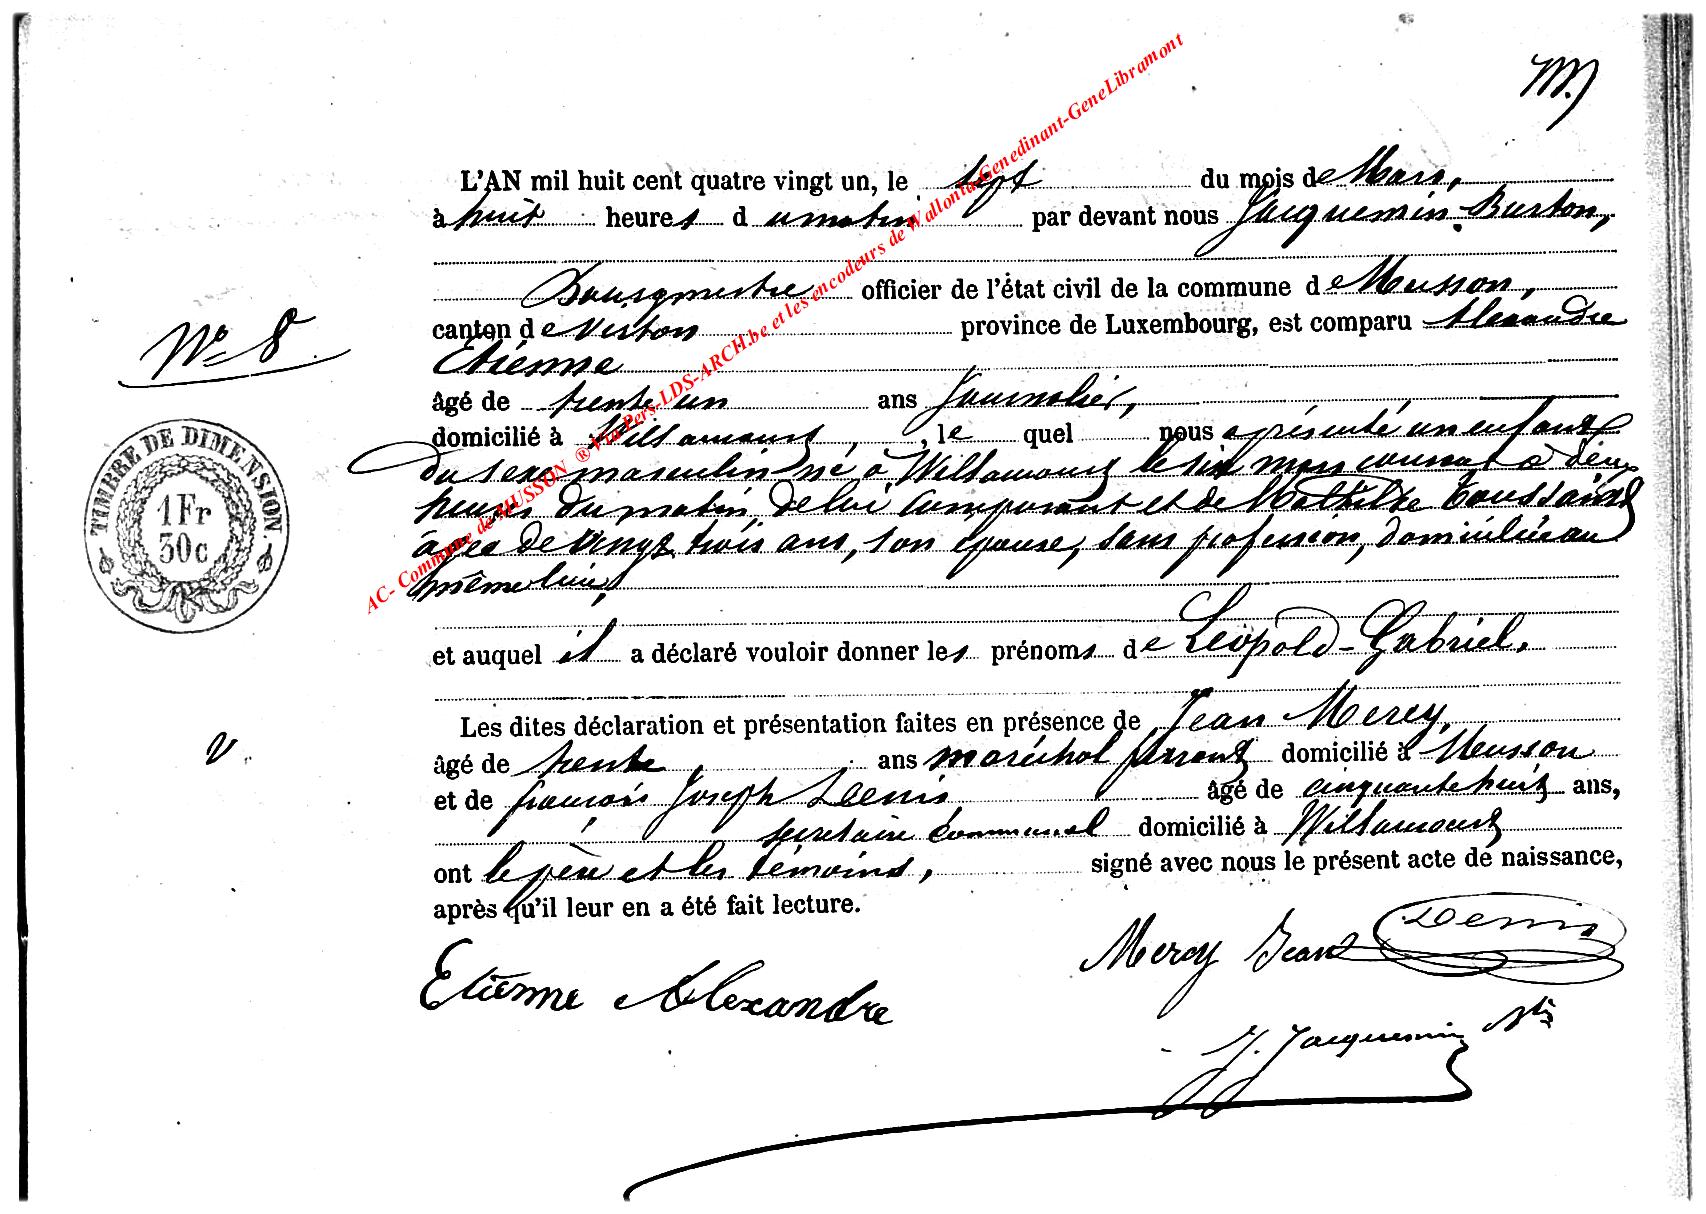 L'AN mil huit cent quatre vingt un, le sept du mois de Mars,
à huit heures du matin par devant nous Jacquemin-Burton,
Bourgmestre officier de l'état civil de la commune de Musson,
canton de Virton province de Luxembourg, est comparu Alexandre
Etienne
âgé de trente un ans Journalier,
domicilié à Willancourt, , le quel nous a présenté un enfant
du sexe masculin né à Willancourt le six mars courant à deux
heures du matin de lui comparant et de Mathilde Toussaint
âgée de vingt trois ans, son épouse, sans profession, domiciliée au
même lieu,
et auquel il a déclaré vouloir donner les prénoms de Léopold-Gabriel.
Les dites déclaration et présentation faites en présence de Jean Mercy,
âgé de trente ans maréchal ferrant domicilié à Musson
et de françois Joseph Denis âgé de cinquante huit ans,
secrétaire communal domicilié à Willancourt
ont le père et les témoins, signé avec nous le présent acte de naissance,
après qu'il leur en a été fait lecture.
Etienne Alexandre
Mercy Jean
Denis
J. Jacquemin Btn
N° 8
TIMBRE DE DIMENSION.
1 Fr
30c
v
AC- Commune de MUSSON ® Via Pers-LDS-ARCH.be et les encodeurs de Wallonia-Genedinant-GeneLibramont